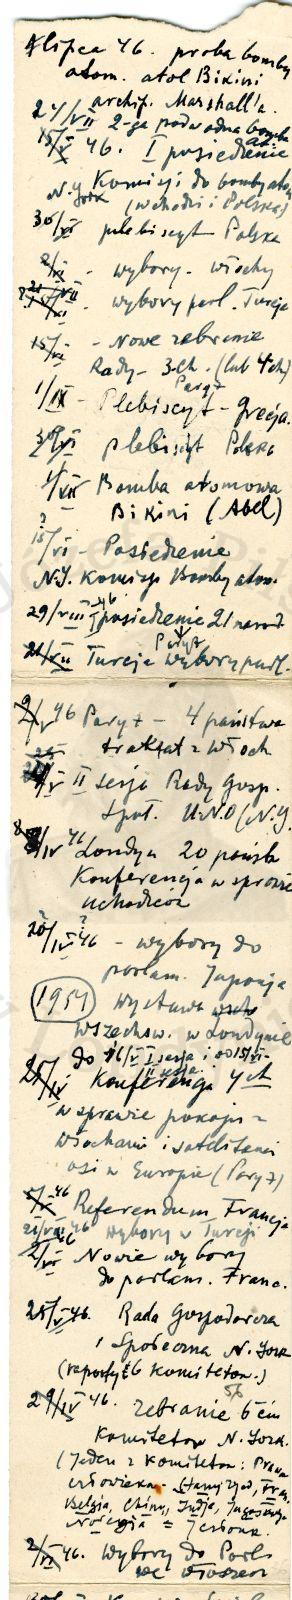 1 lipca 46. proba bomby
atom. atol Bikini
archip. Marshall'a.
24/VII 2-ga podwodna bomba
15/X 46. I posiedzenie
N.Y. Komisji do bomby atom
(wchodzi i Polska)
30/VI plebiscyt Polska
2/VI - wybory - Włochy
21/VII wybory parl. Turcja
15/VI - Nowe zebranie
Rady - 3-ch. (lub 4ch)
Paryż
1/IX - Plebiscyt - Grecja.
30/VI plebiscyt Polska
1/VII Bomba atomowa
Bikini (Abel)
15/VI - Posiedzenie
N.Y. Komisji Bomby atom.
29/VIII 46 I posiedzenie 21 narod
Paryż
21/VII Turcja wybory parl.
2/V 46 Paryż - 4 państwa
traktat z Włoch
25/V II sesja Rady Gosp.
Społ. U.N.O (N.Y.
8/IV 46 Londyn 20 państw
Konferencja w sprawie
uchodźców
20/IV 46 - wybory do
parlam. Japonja
1951 Wystawa
Wszechśw. w Londynie
do 16/V I sesja i od 15/VI -
II sesja
25/IV Konferencja 4ch
w sprawie pokoju z
Włochami i satelitami
osi w Europie (Paryż)
5/V 46 Referendum Francja
21/VII 46 wybory w Turcji
2/VI 46 Nowe wybory
do parlam. Franc.
25/V 46. Rada Gospodarcza
i Społeczna N. York
(raporty 6 Komitetow.)
29/IV 46. zebranie 6ciu
Komitetow N. York.
(jeden z Komitetow: Prawa
człowieka - Stany Zjed, Fran,
Belgja, Chiny, Indje, Jugosławja
Norwegja =
2/VI 46. Wybory do Parl.
we Włoszech